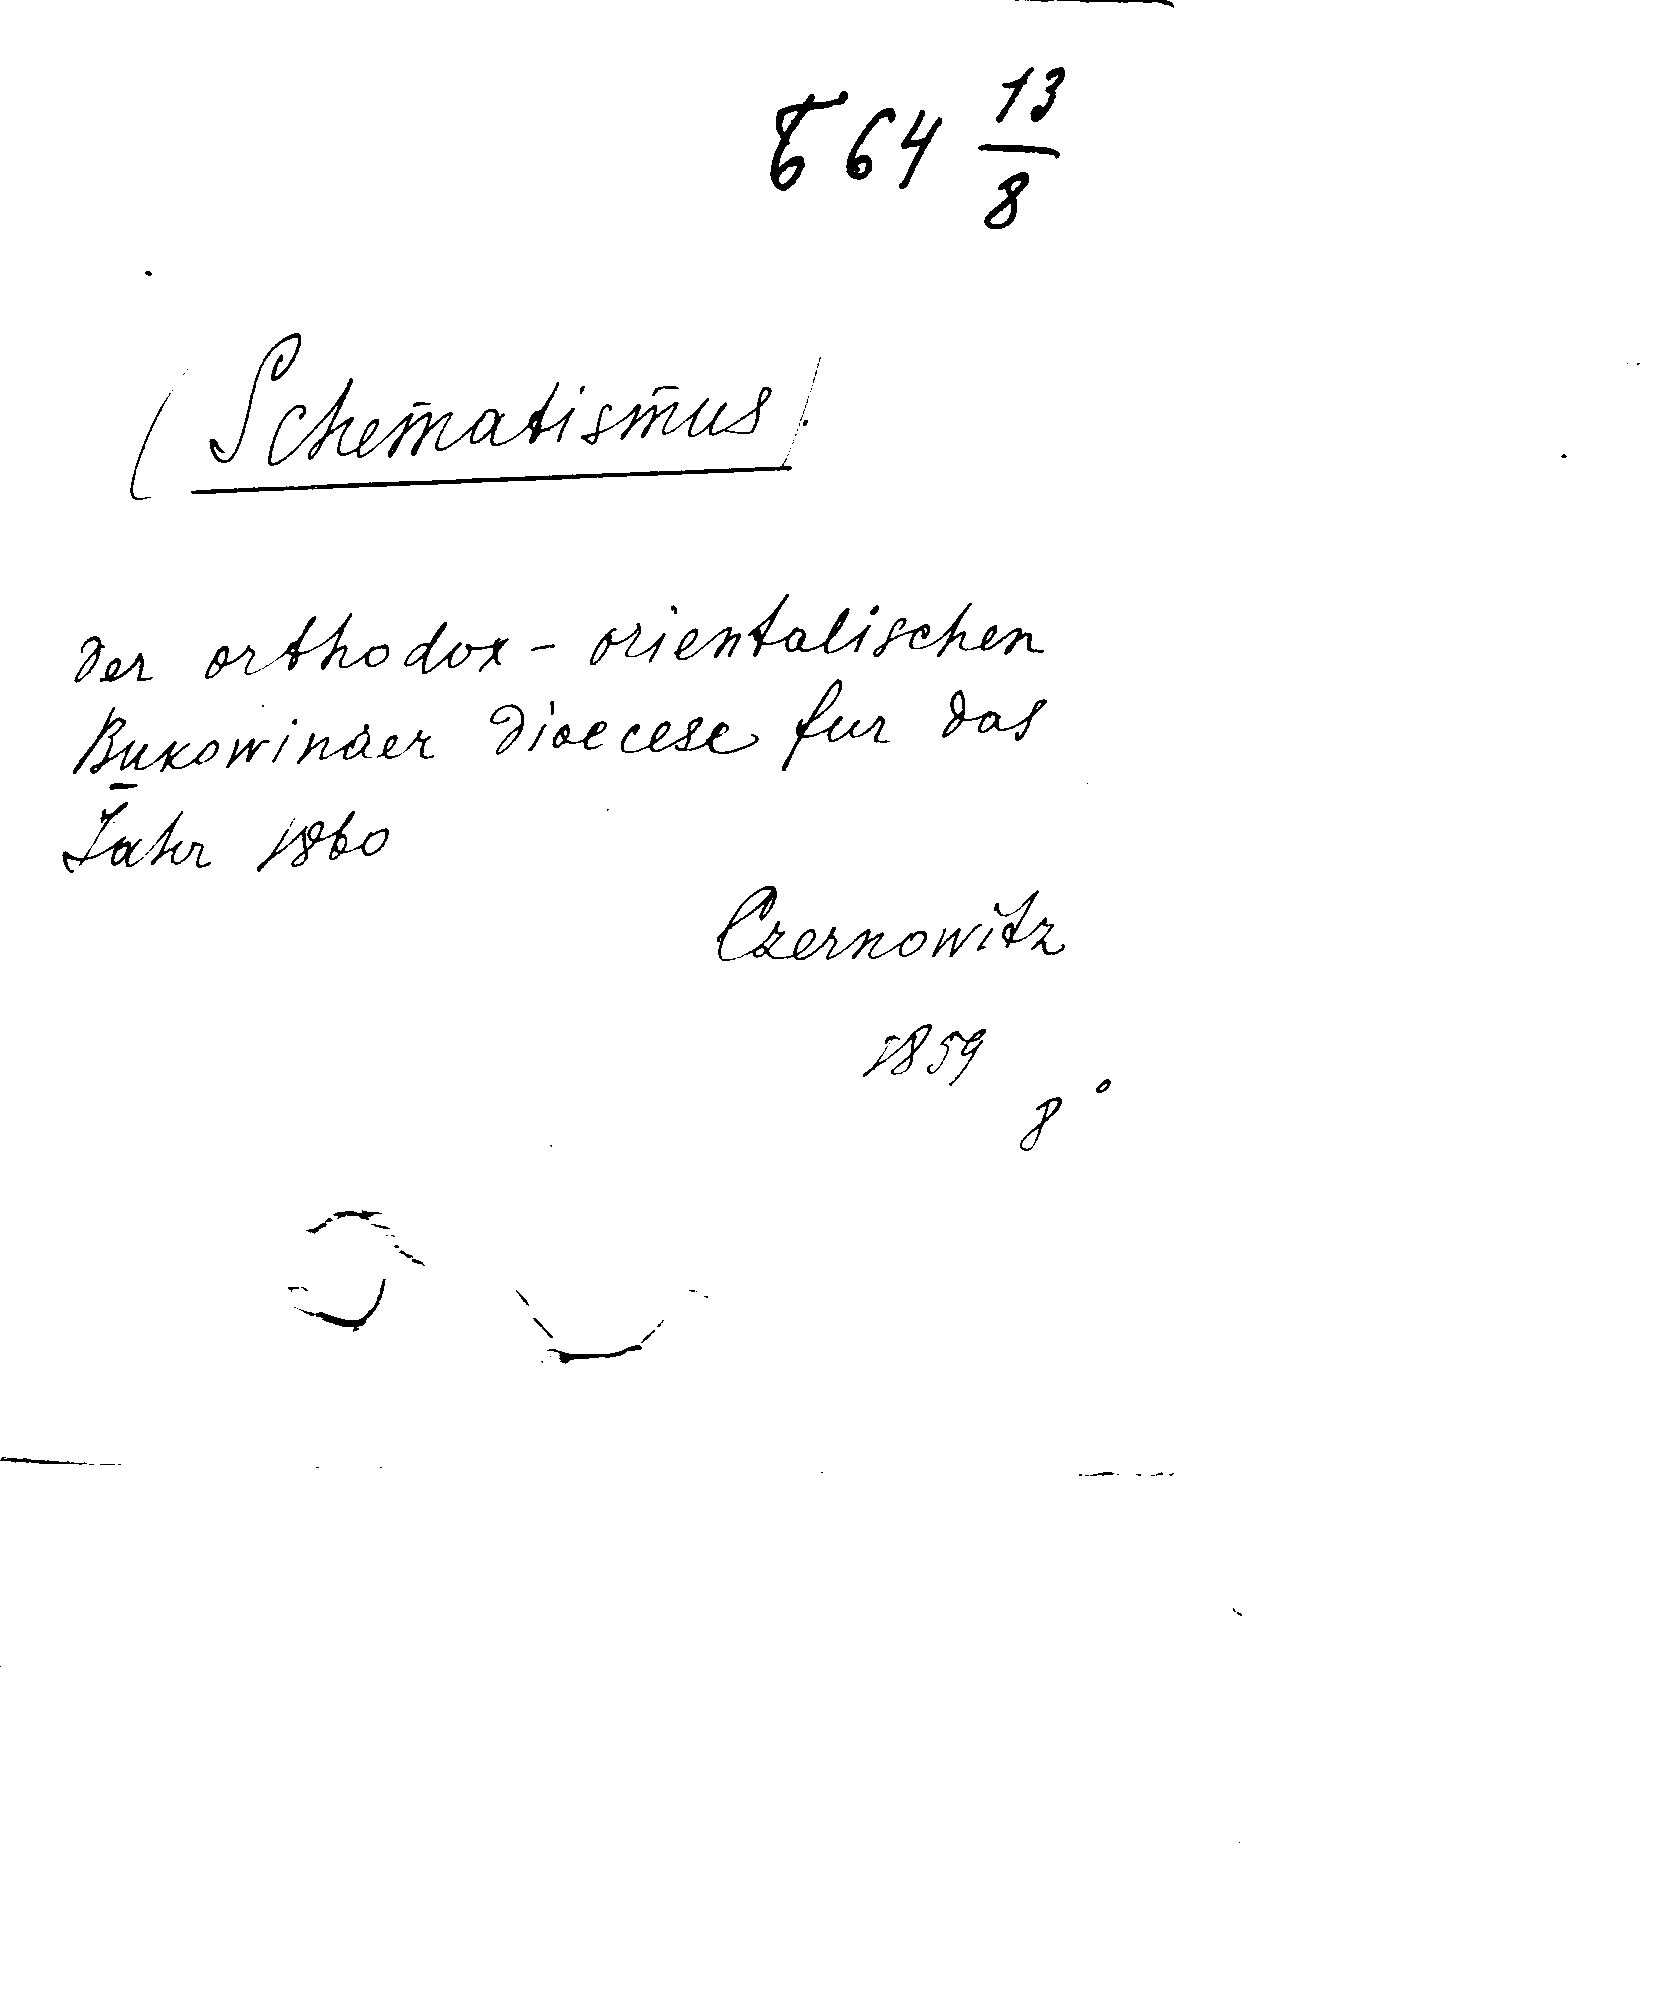 Б 64 13/8
(Schematismus)
der orthodox - orientalischen
Bukowinaer Dioecese fur das
Jahr 1860
Czernowitz
1859
8°